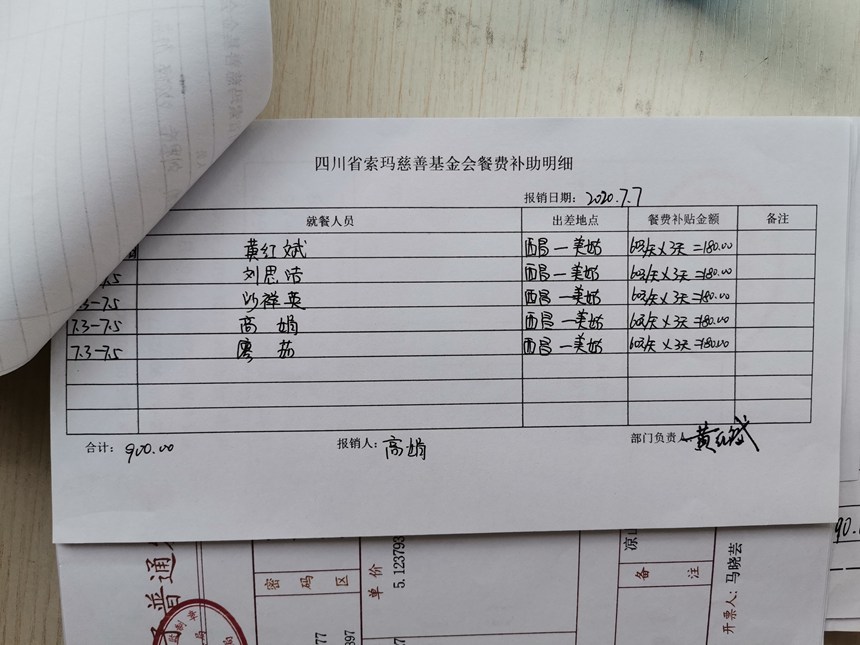 四川省索玛慈善基金会餐费补助明细
报销日期: 2020.7.7
就餐人员 出差地点 餐费补贴金额 备注
黄红斌 西昌—美姑 60/天×3天=180.00
7.5 刘思洁 西昌—美姑 60/天×3天=180.00
7.3-7.5 沙祥英 西昌—美姑 60/天×3天=180.00
7.3-7.5 高娟 西昌—美姑 60/天×3天=180.00
7.3-7.5 廖茹 西昌—美姑 60/天×3天=180.00
合计: 900.00 报销人: 高娟 部门负责人 黄红斌
普通
密码区
单价
5.123793
凉山
备注
开票人: 马晓芸
77
397
90.